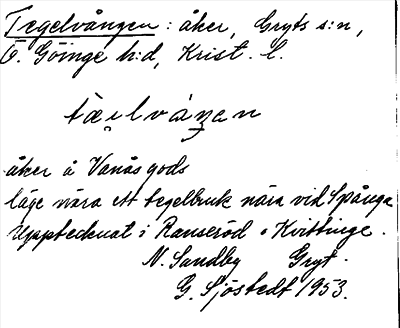 Tegelvången: åker, Gryts s:n,
Ö. Göinge h:d, Krist. l.
tæ̀i̯lváŋən
åker å Vanås gods
läge nära ett tegelbruk nära vid Spånga
Upptecknat i Ranseröd i Kvittinge.
N. Sandby Gryt.
G. Sjöstedt 1953.